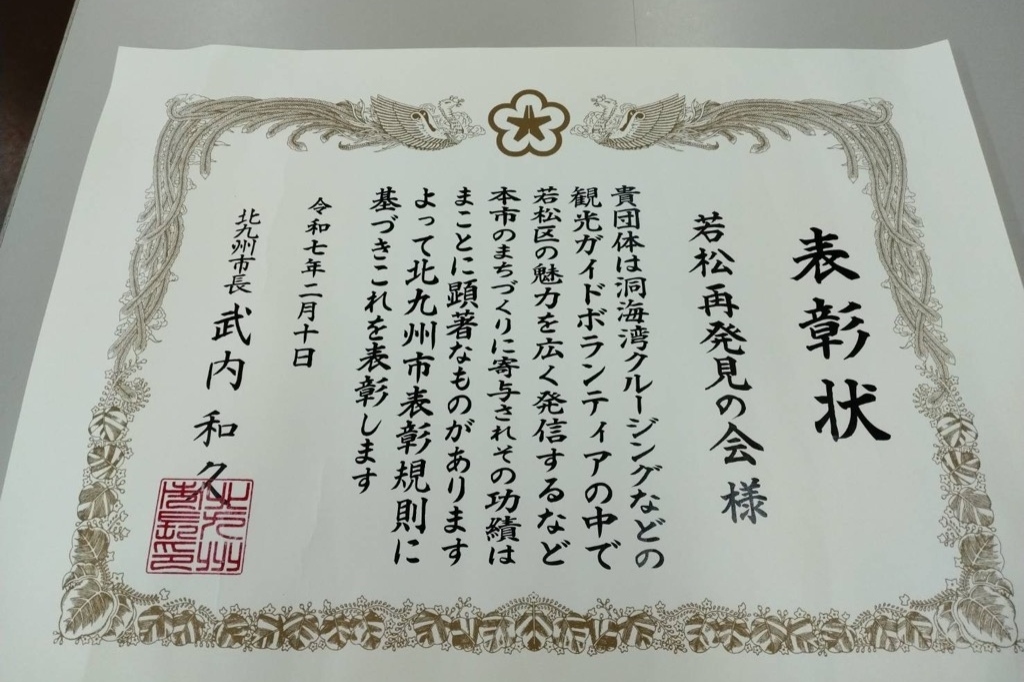 表彰状
若松再発見の会様
貴団体は洞海湾クルージングなどの
観光ガイドボランティアの中で
若松区の魅力を広く発信するなど
本市のまちづくりに寄与されその功績は
まことに顕著なものがあります
よって北九州市表彰規則に
基づきこれを表彰します
令和七年二月十日
北九州市長 武内和久
北九州
市長印